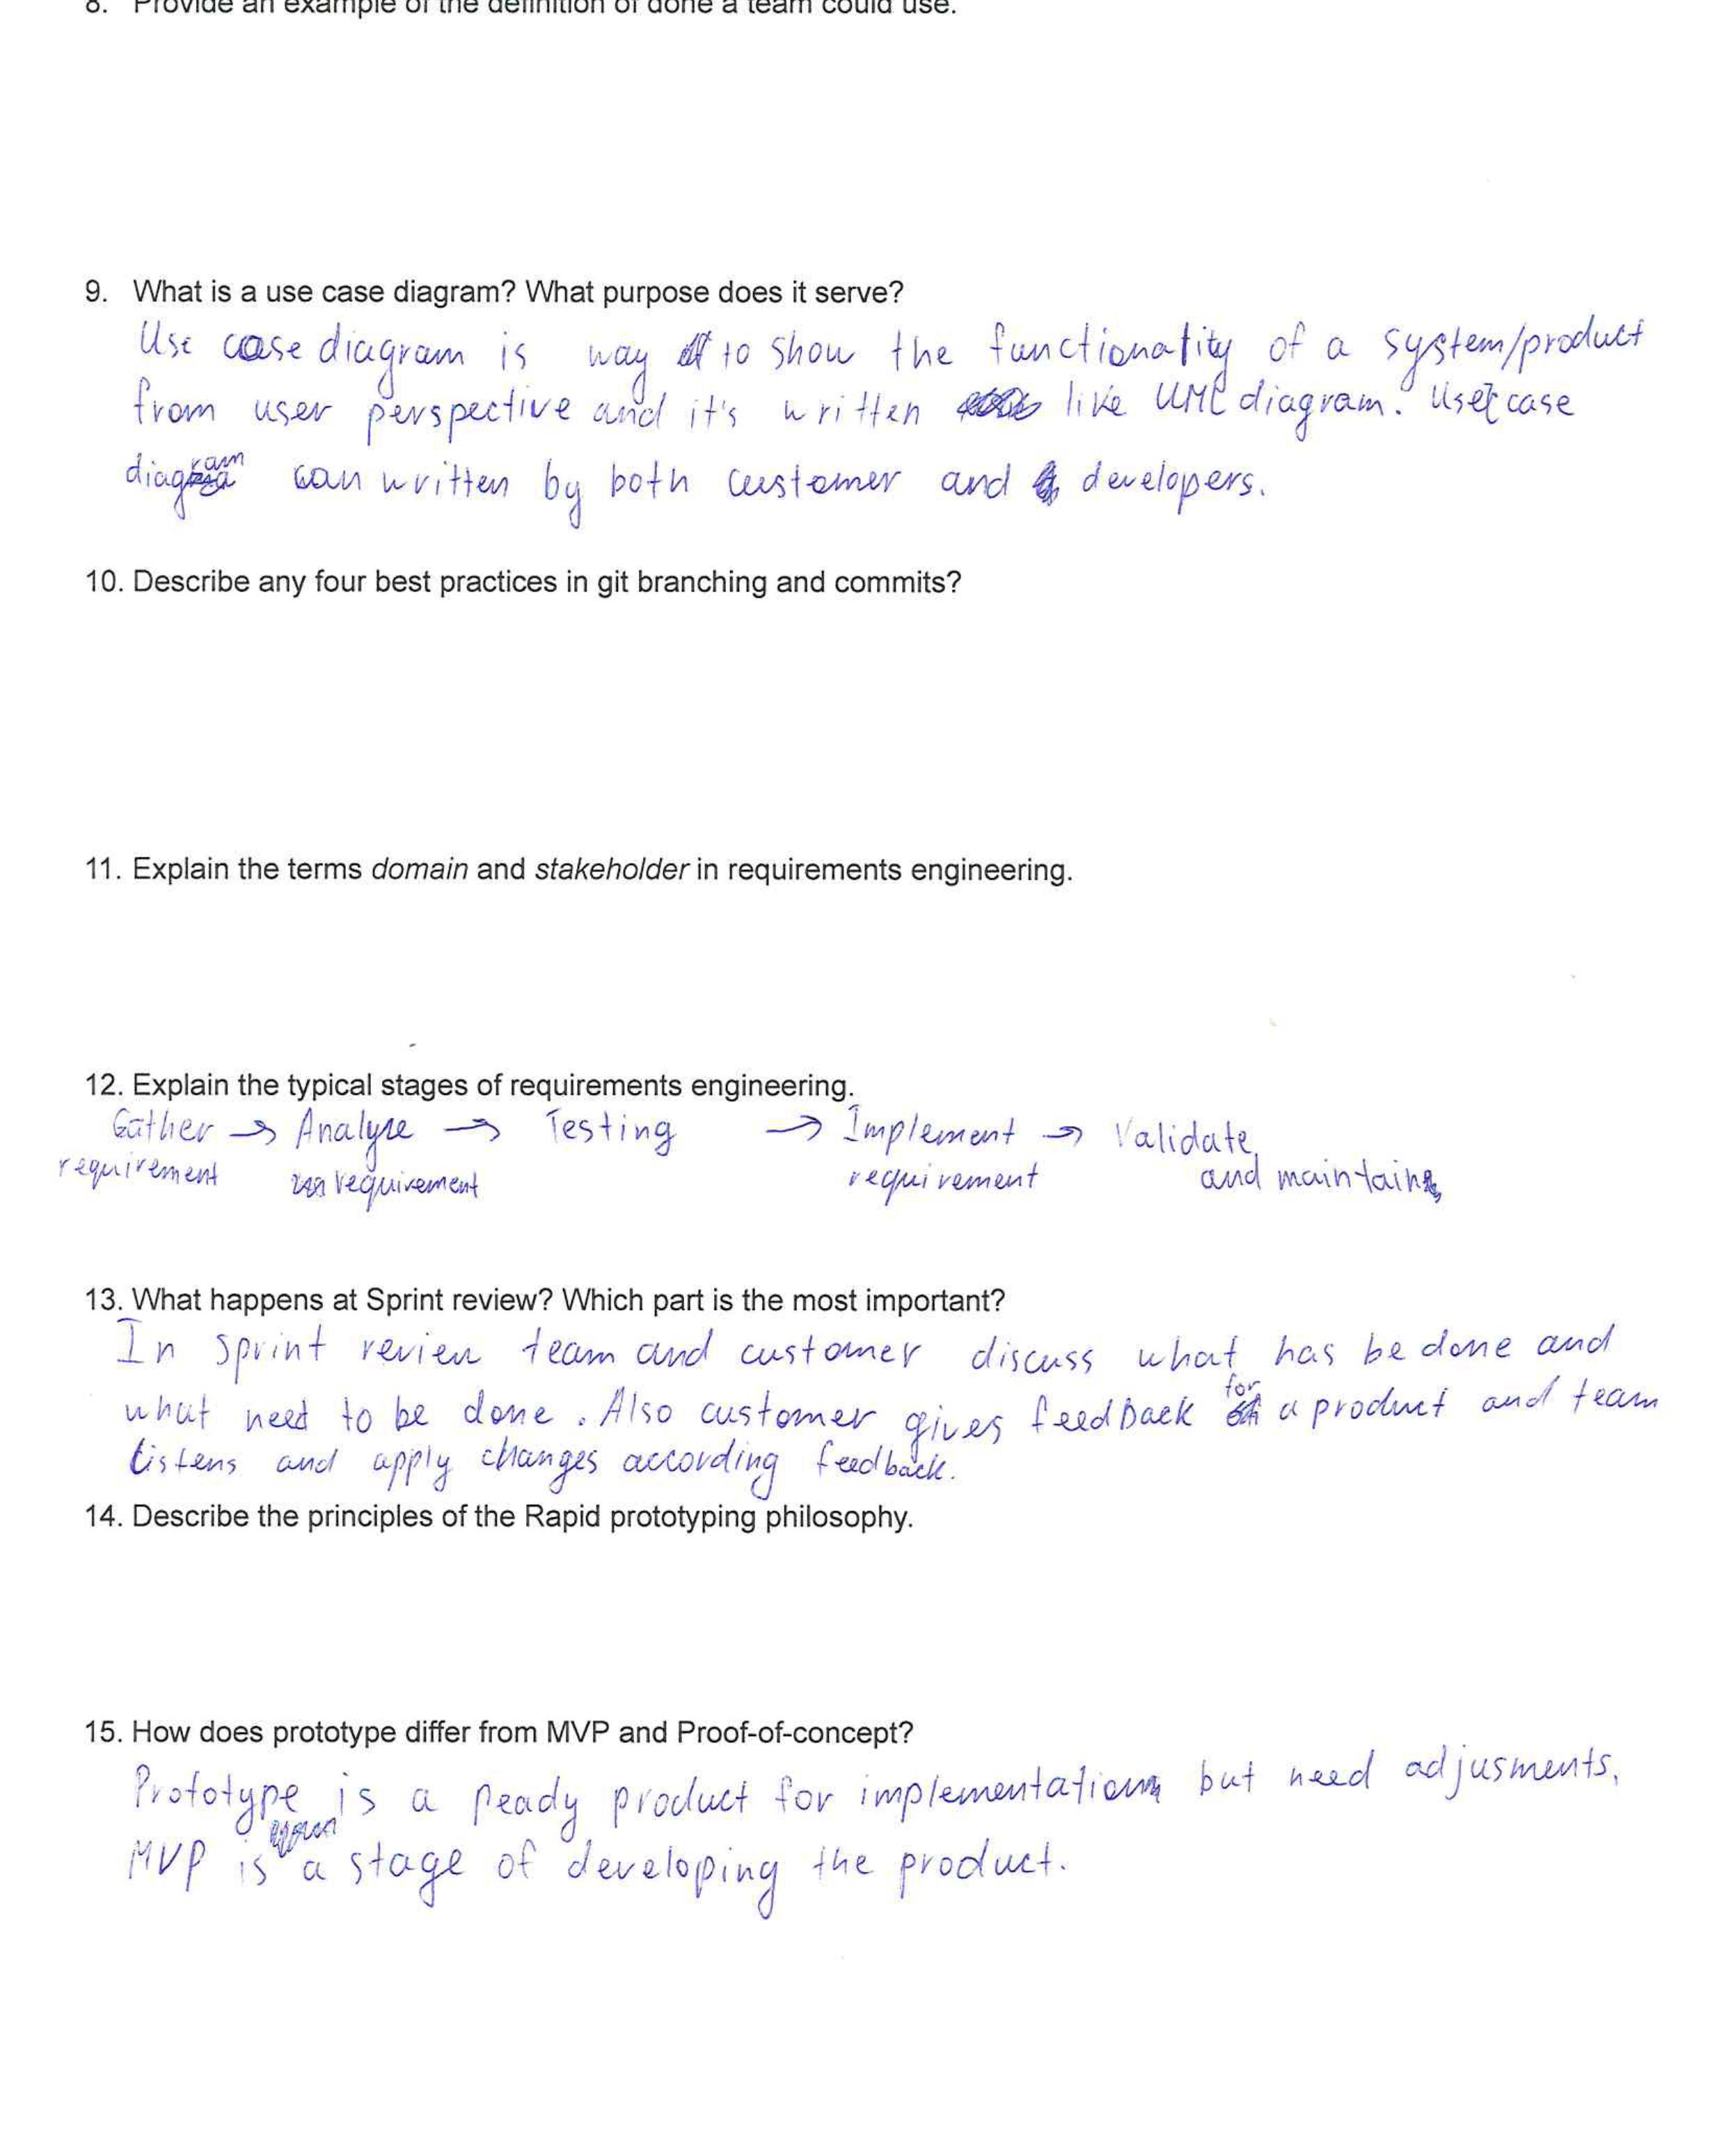 8. Provide an example of the definition of done a team could use.
9. What is a use case diagram? What purpose does it serve?
Use case diagram is way to show the functionality of a system/product
from user perspective and it's written like UML diagram. Use case
diagram can written by both customer and developers.
10. Describe any four best practices in git branching and commits?
11. Explain the terms domain and stakeholder in requirements engineering.
12. Explain the typical stages of requirements engineering.
Gather → Analyze → Testing → Implement → Validate
requirement requirement requirement and maintain
13. What happens at Sprint review? Which part is the most important?
In sprint review team and customer discuss what has be done and
what need to be done. Also customer gives feedback for a product and team
listens and apply changes according feedback.
14. Describe the principles of the Rapid prototyping philosophy.
15. How does prototype differ from MVP and Proof-of-concept?
Prototype is a ready product for implementation but need adjusments.
MVP is a stage of developing the product.